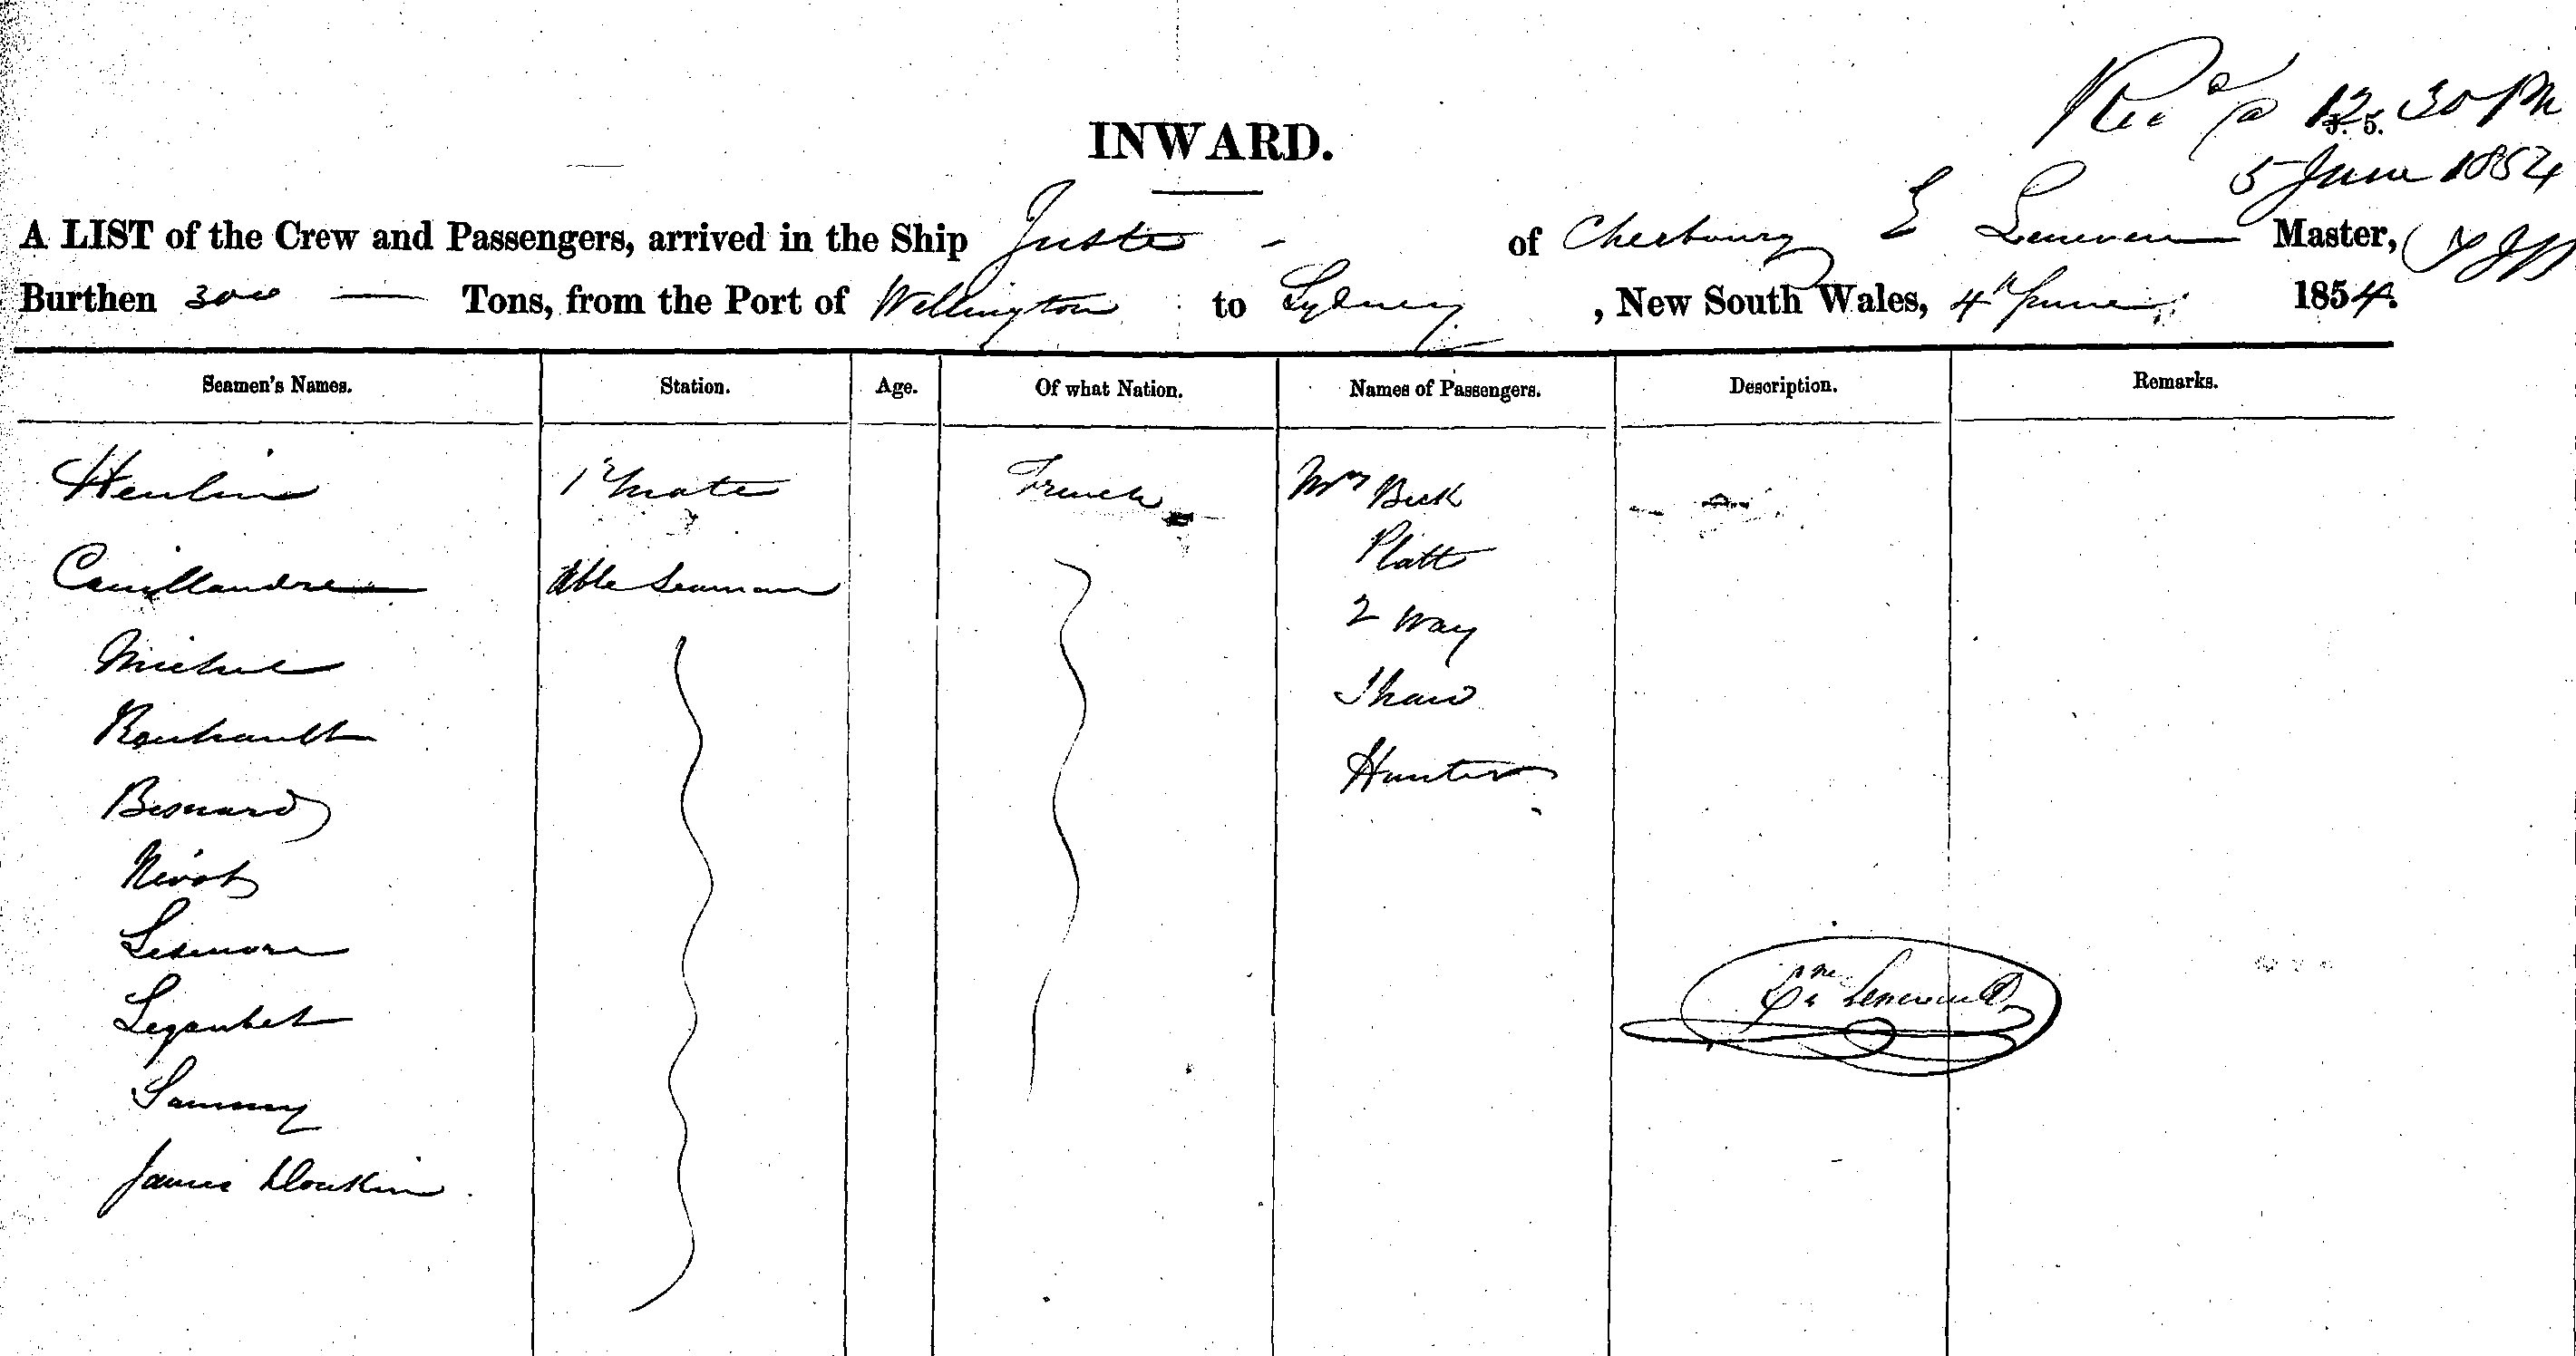 Recd @ 12. 30 PM
J. 5.
5 June 1854
INWARD.
A LIST of the Crew and Passengers, arrived in the Ship Juste - of Cherbourg E Master,
Burthen 300 — Tons, from the Port of Wellington to Sydney, New South Wales, 4th June 1854.
Seamen's Names. Station. Age. Of what Nation. Names of Passengers. Description. Remarks.
Heulin 1st Mate French Mrs Beck
Platt
Able Seaman
2 Way
Michel
Shaw
Rouhault
Hunter
Besnard
Nivot
Lesemore
Legoubet
Sammy
James Donkin